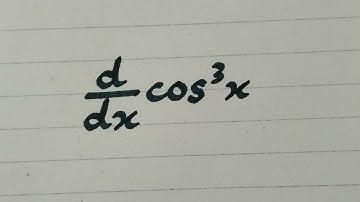 d/dx cos³x